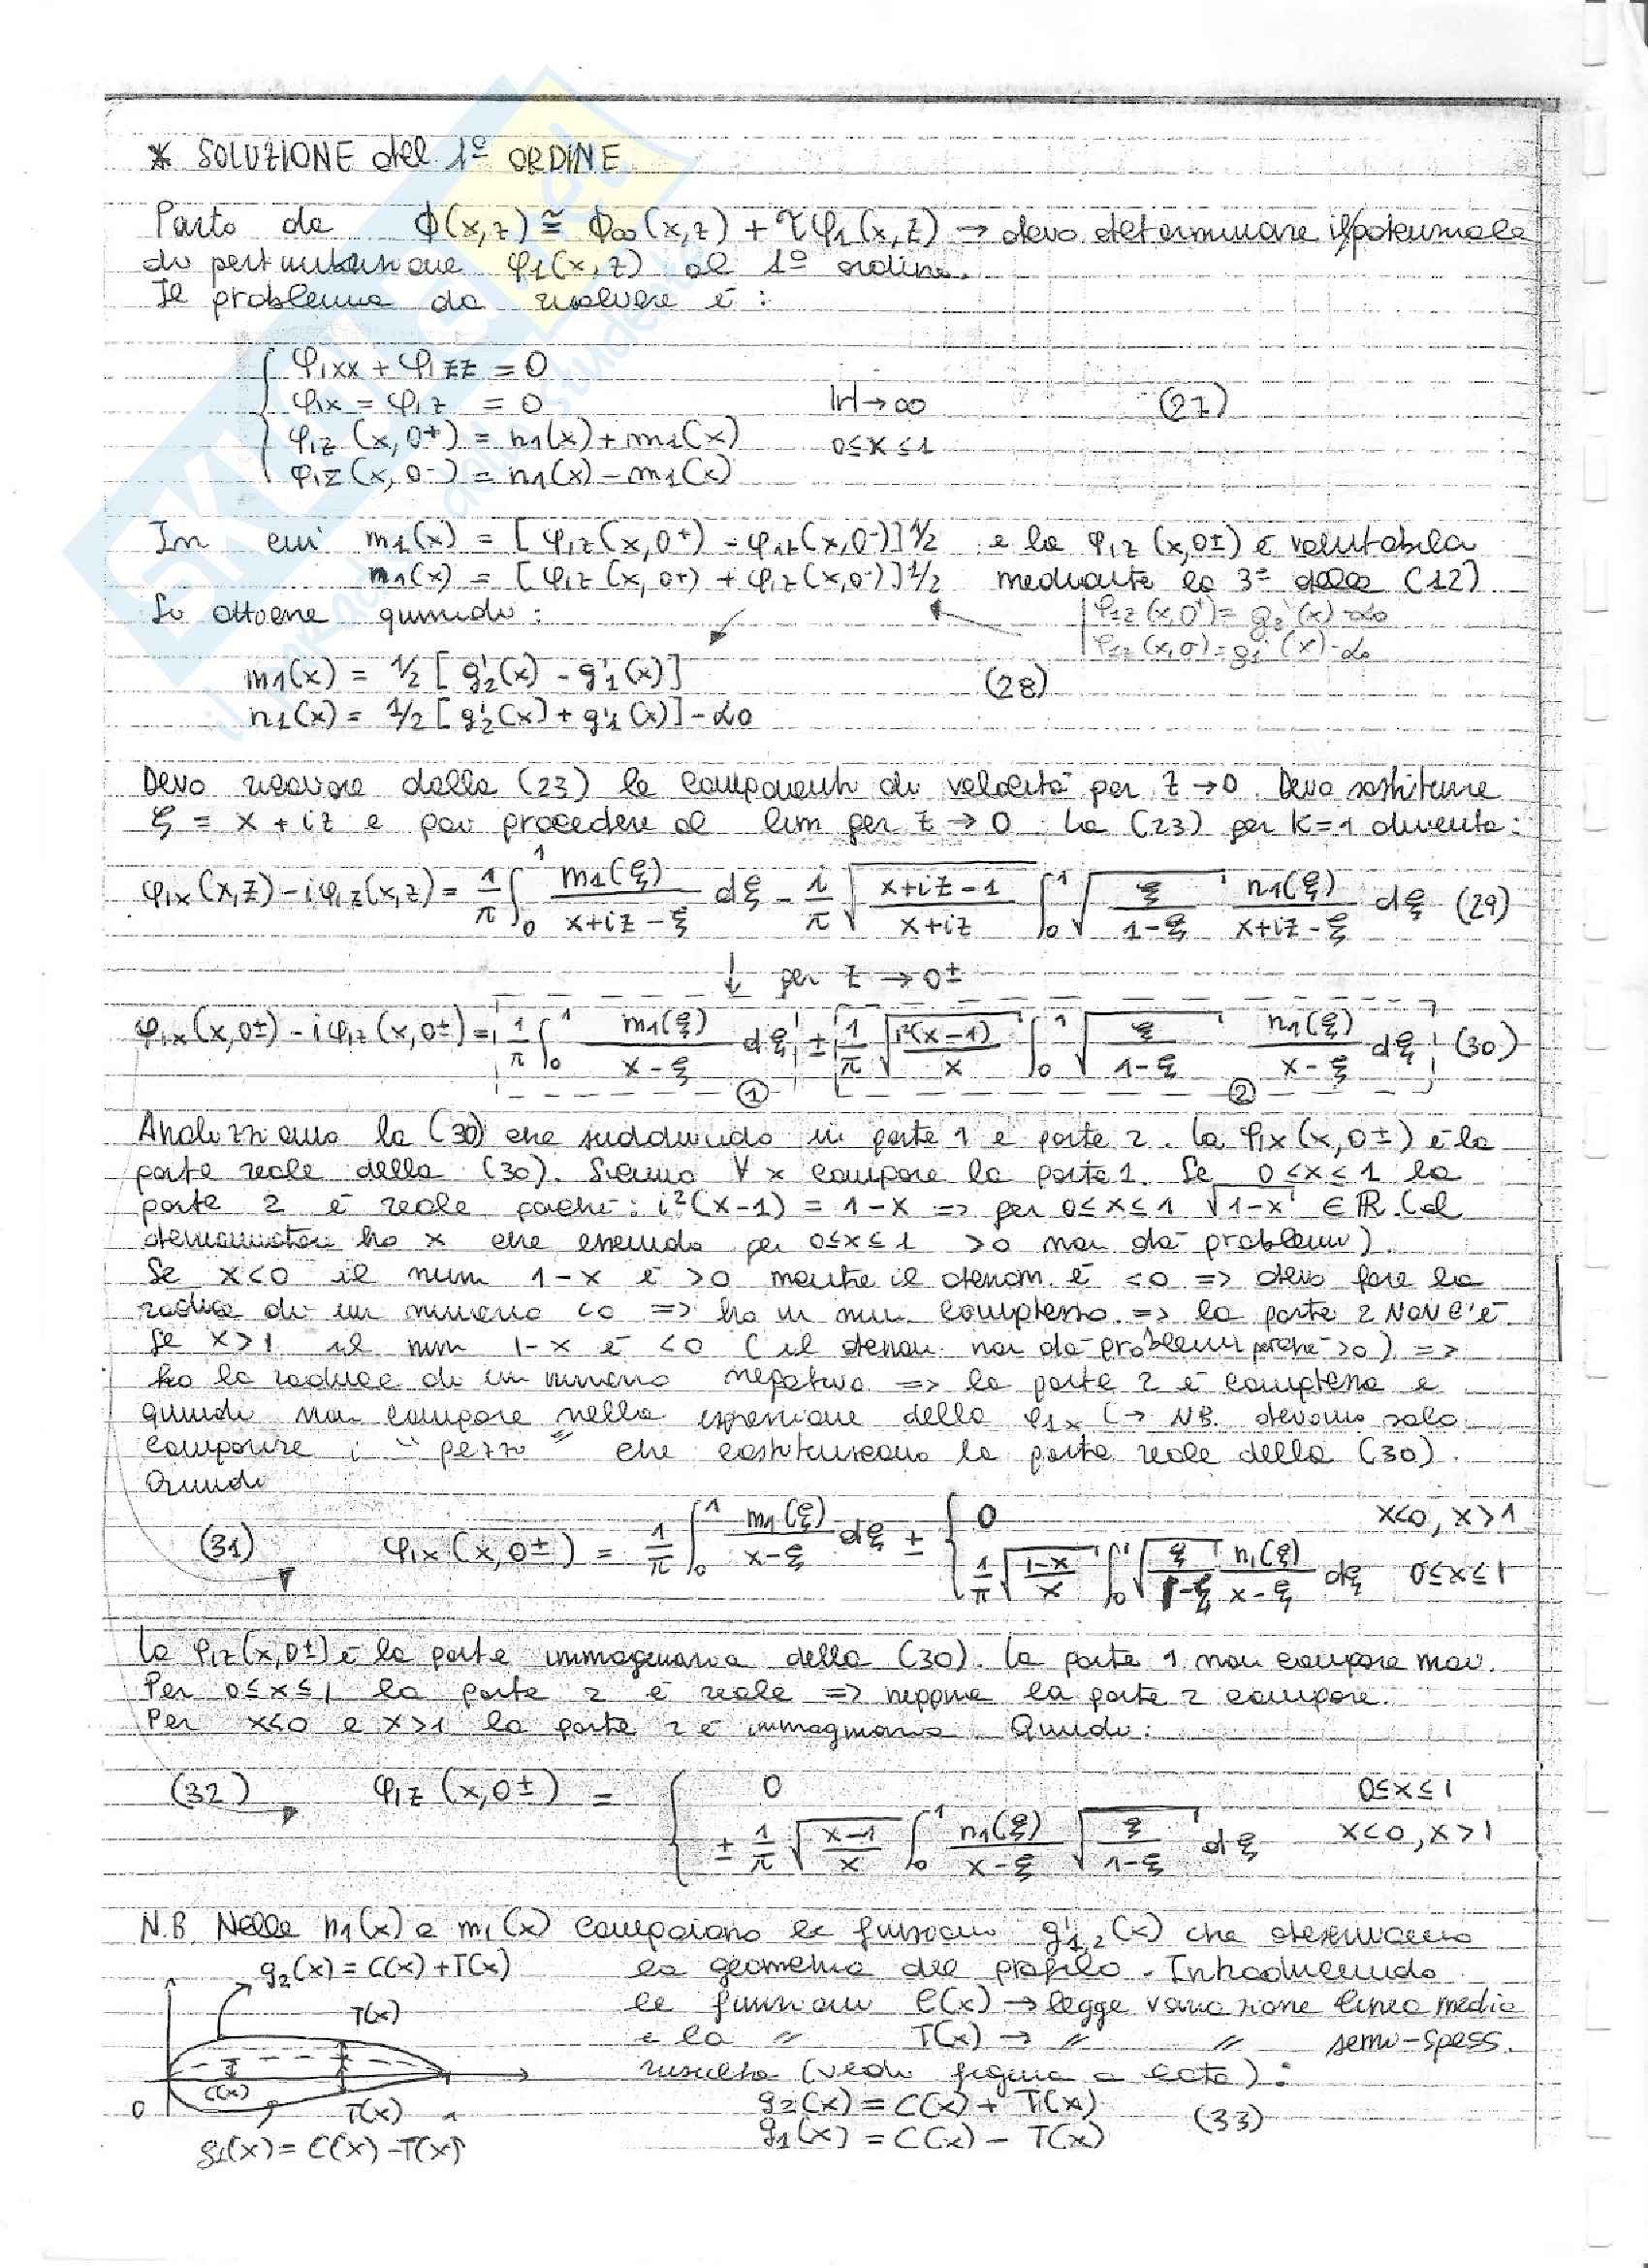 * SOLUZIONE del 1º ORDINE
Parto da ϕ(x,z) ≅ ϕ∞(x,z) + τφ1(x,z) → devo determinare il potenziale
di perturbazione φ1(x,z) al 1º ordine.
Il problema da risolvere è:
φ1xx + φ1zz = 0
φ1x = φ1z = 0 |r|→∞ (27)
φ1z (x,0+) = n1(x) + m1(x) 0≤x≤1
φ1z (x,0-) = n1(x) - m1(x)
In cui m1(x) = [φ1z(x,0+) - φ1z(x,0-)]1/2 e la φ1z (x,0±) è valutabile
n1(x) = [φ1z(x,0+) + φ1z(x,0-)]1/2 mediante la 3ª delle (12)
Si ottiene quindi: φ1z (x,0+) = g2'(x) - α0
φ1z (x,0-) = g1'(x) - α0
m1(x) = 1/2 [g2'(x) - g1'(x)] (28)
n1(x) = 1/2 [g2'(x) + g1'(x)] - α0
Devo ricavare dalla (23) le componenti di velocità per z→0. Devo sostituire
ξ = x + iz e poi procedere al lim per z→0. La (23) per K=1 diventa:
φ1x(x,z) - iφ1z(x,z) = 1/π ∫₀¹ m1(ξ)/(x+iz-ξ) dξ - i/π √((x+iz-1)/(x+iz)) ∫₀¹ √(ξ/(1-ξ)) n1(ξ)/(x+iz-ξ) dξ (29)
↓ per z → 0±
φ1x(x,0±) - iφ1z(x,0±) = 1/π ∫₀¹ m1(ξ)/(x-ξ) dξ ± 1/π √(i²(x-1)/x) ∫₀¹ √(ξ/(1-ξ)) n1(ξ)/(x-ξ) dξ (30)
① ②
Analizziamo la (30) che suddivido in parte 1 e parte 2. La φ1x(x,0±) è la
parte reale della (30). ∀x compare la parte 1. Se 0≤x≤1 la
parte 2 è reale perché: i²(x-1) = 1-x => per 0≤x≤1 √1-x ∈ ℝ (al
denominatore ho x che essendo per 0≤x≤1 >0 non dà problemi).
Se x<0 il num 1-x è >0 mentre il denom. è <0 => devo fare la
radice di un numero <0 => ho un num. complesso => la parte 2 NON C'è
Se x>1 il num 1-x è <0 (il denom. non dà problemi perché >0) =>
ho la radice di un numero negativo => la parte 2 è complessa e
quindi non compare nella espressione della φ1x (→ NB. devono solo
comparire i "pezzi" che costituiscono la parte reale della (30).
Quindi
(31) φ1x(x,0±) = 1/π ∫₀¹ m1(ξ)/(x-ξ) dξ ± { 0 x<0, x>1
1/π √((1-x)/x) ∫₀¹ √(ξ/(1-ξ)) n1(ξ)/(x-ξ) dξ 0≤x≤1
La φ1z(x,0±) è la parte immaginaria della (30). La parte 1 non compare mai.
Per 0≤x≤1 la parte 2 è reale => neppure la parte 2 compare.
Per x<0 e x>1 la parte 2 è immaginaria. Quindi:
(32) φ1z (x,0±) = { 0 0≤x≤1
± 1/π √((x-1)/x) ∫₀¹ n1(ξ)/(x-ξ) √(ξ/(1-ξ)) dξ x<0, x>1
N.B. Nelle n1(x) e m1(x) compaiono le funzioni g'1,2(x) che descrivono
g2(x) = C(x) + T(x) la geometria del profilo. Introducendo
T(x) le funzioni C(x) → legge variazione linea media
e la " T(x) → " " semi-spess.
C(x) risulta (vedi figura a lato):
0 T(x) 1 g2(x) = C(x) + T(x) (33)
g1(x) = C(x) - T(x) g1(x) = C(x) - T(x)